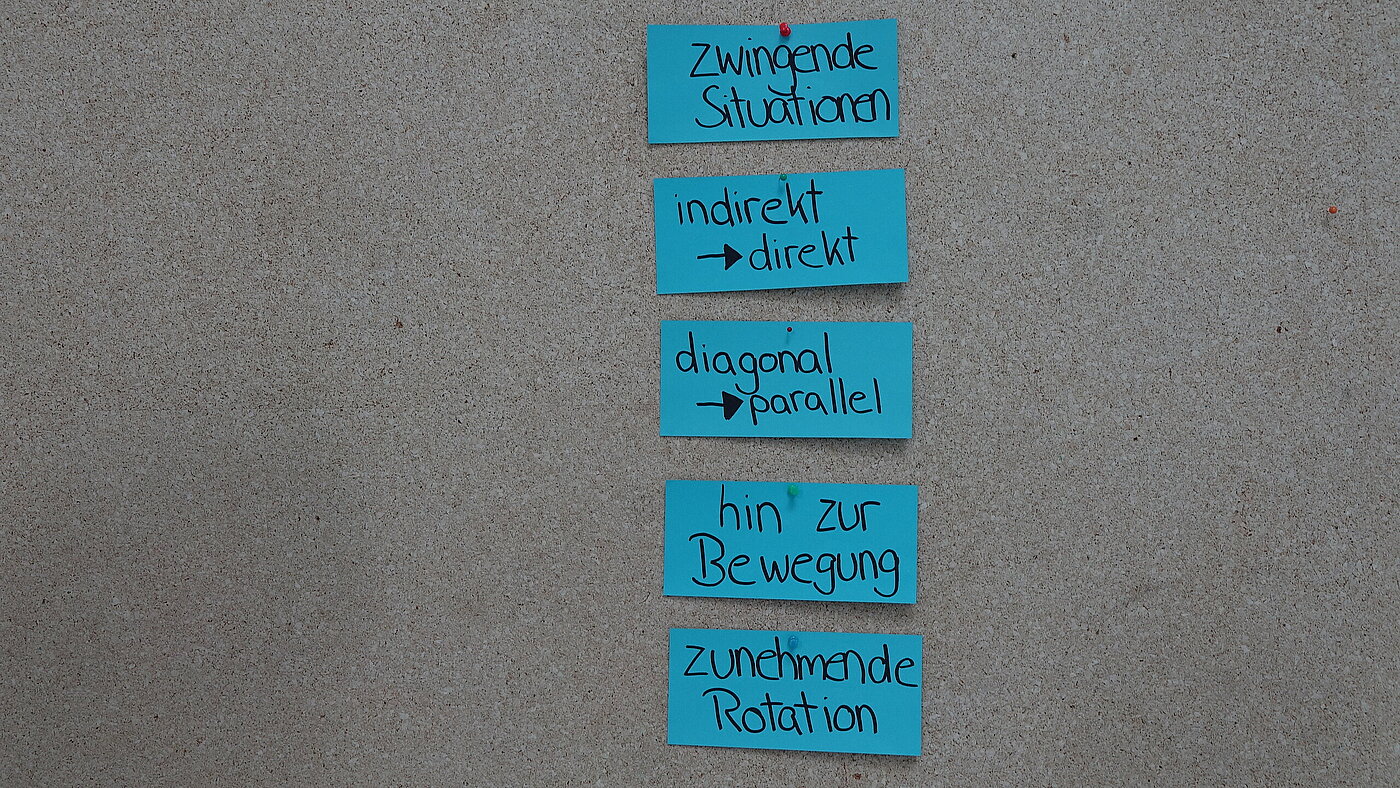 zwingende
Situationen
indirekt
→ direkt
diagonal
→ parallel
hin zur
Bewegung
zunehmende
Rotation